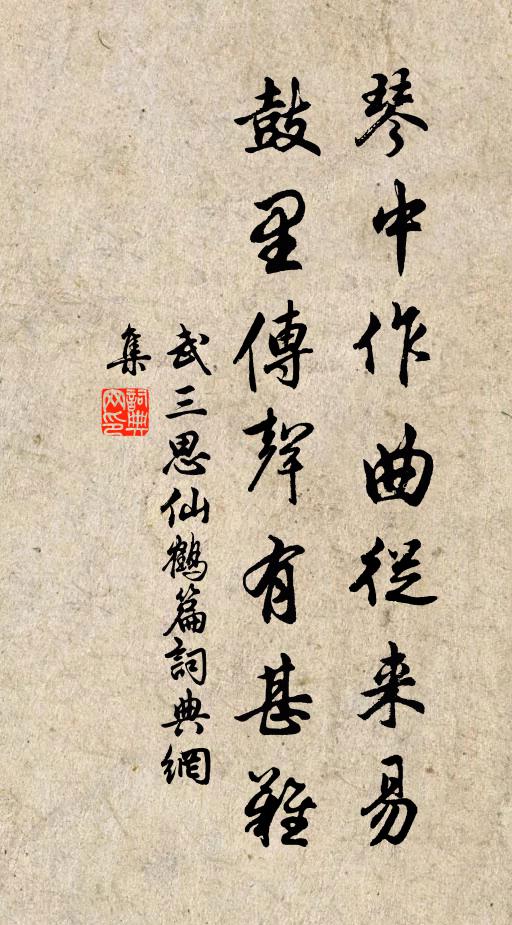 琴中作曲從来易
鼓里傳聲有甚難
武三思仙鶴篇詞典網
集
詞典
网印